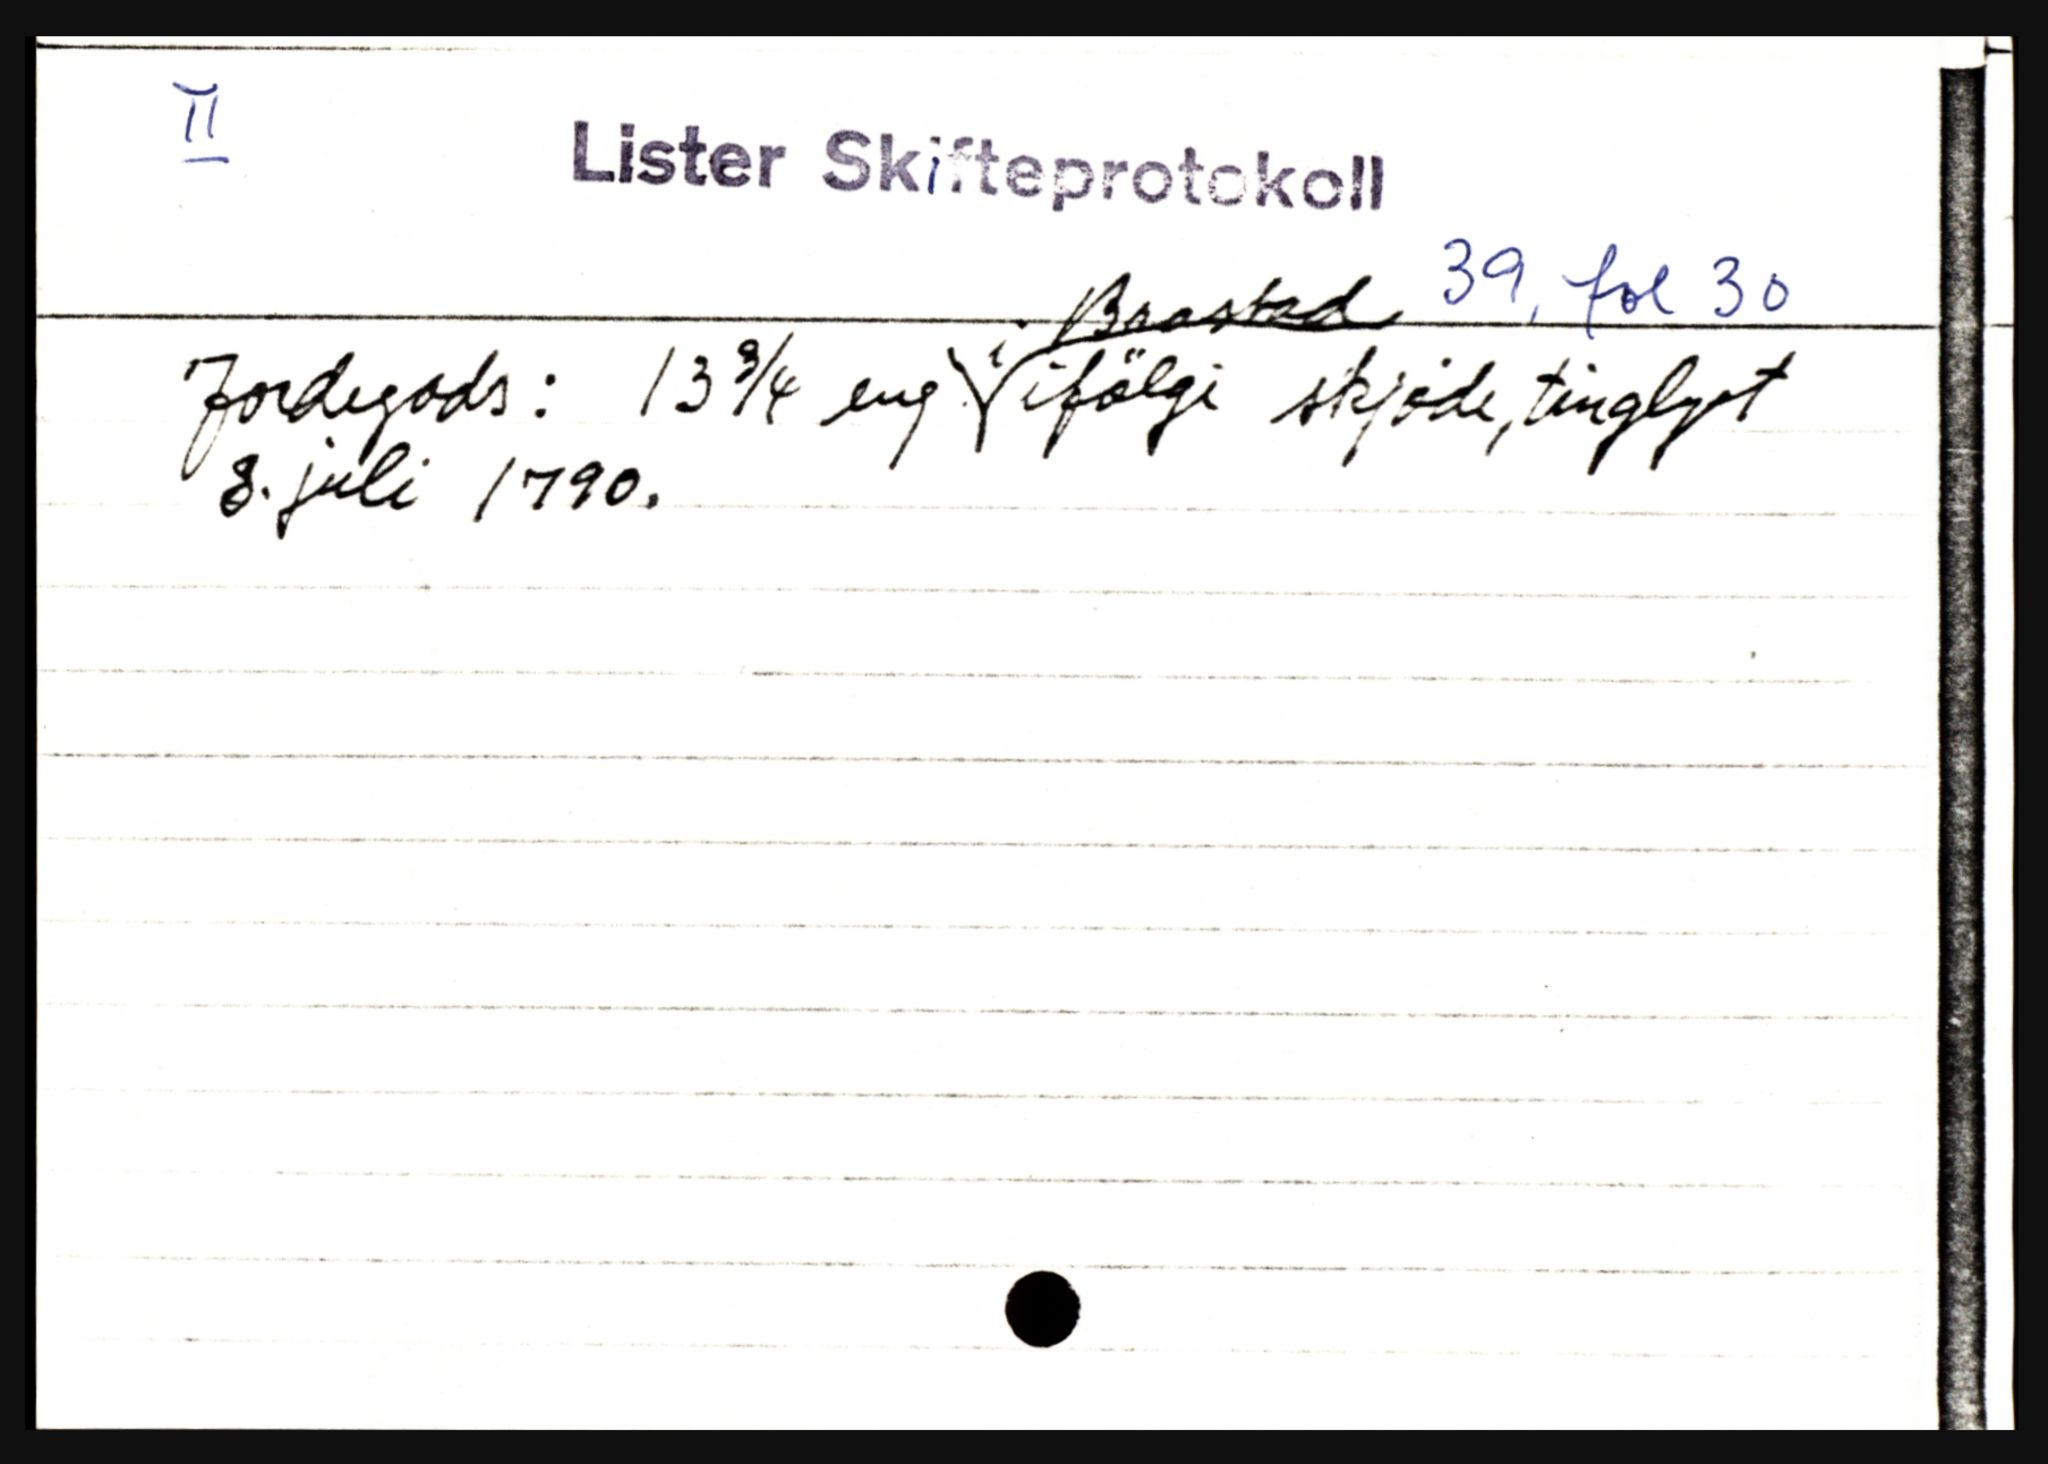 II
Lister Skifteprotokoll
39, fol 30
Jordegods: 13 3/4 eng i Brastad ifölge skjöde, tinglyst
8. juli 1790.